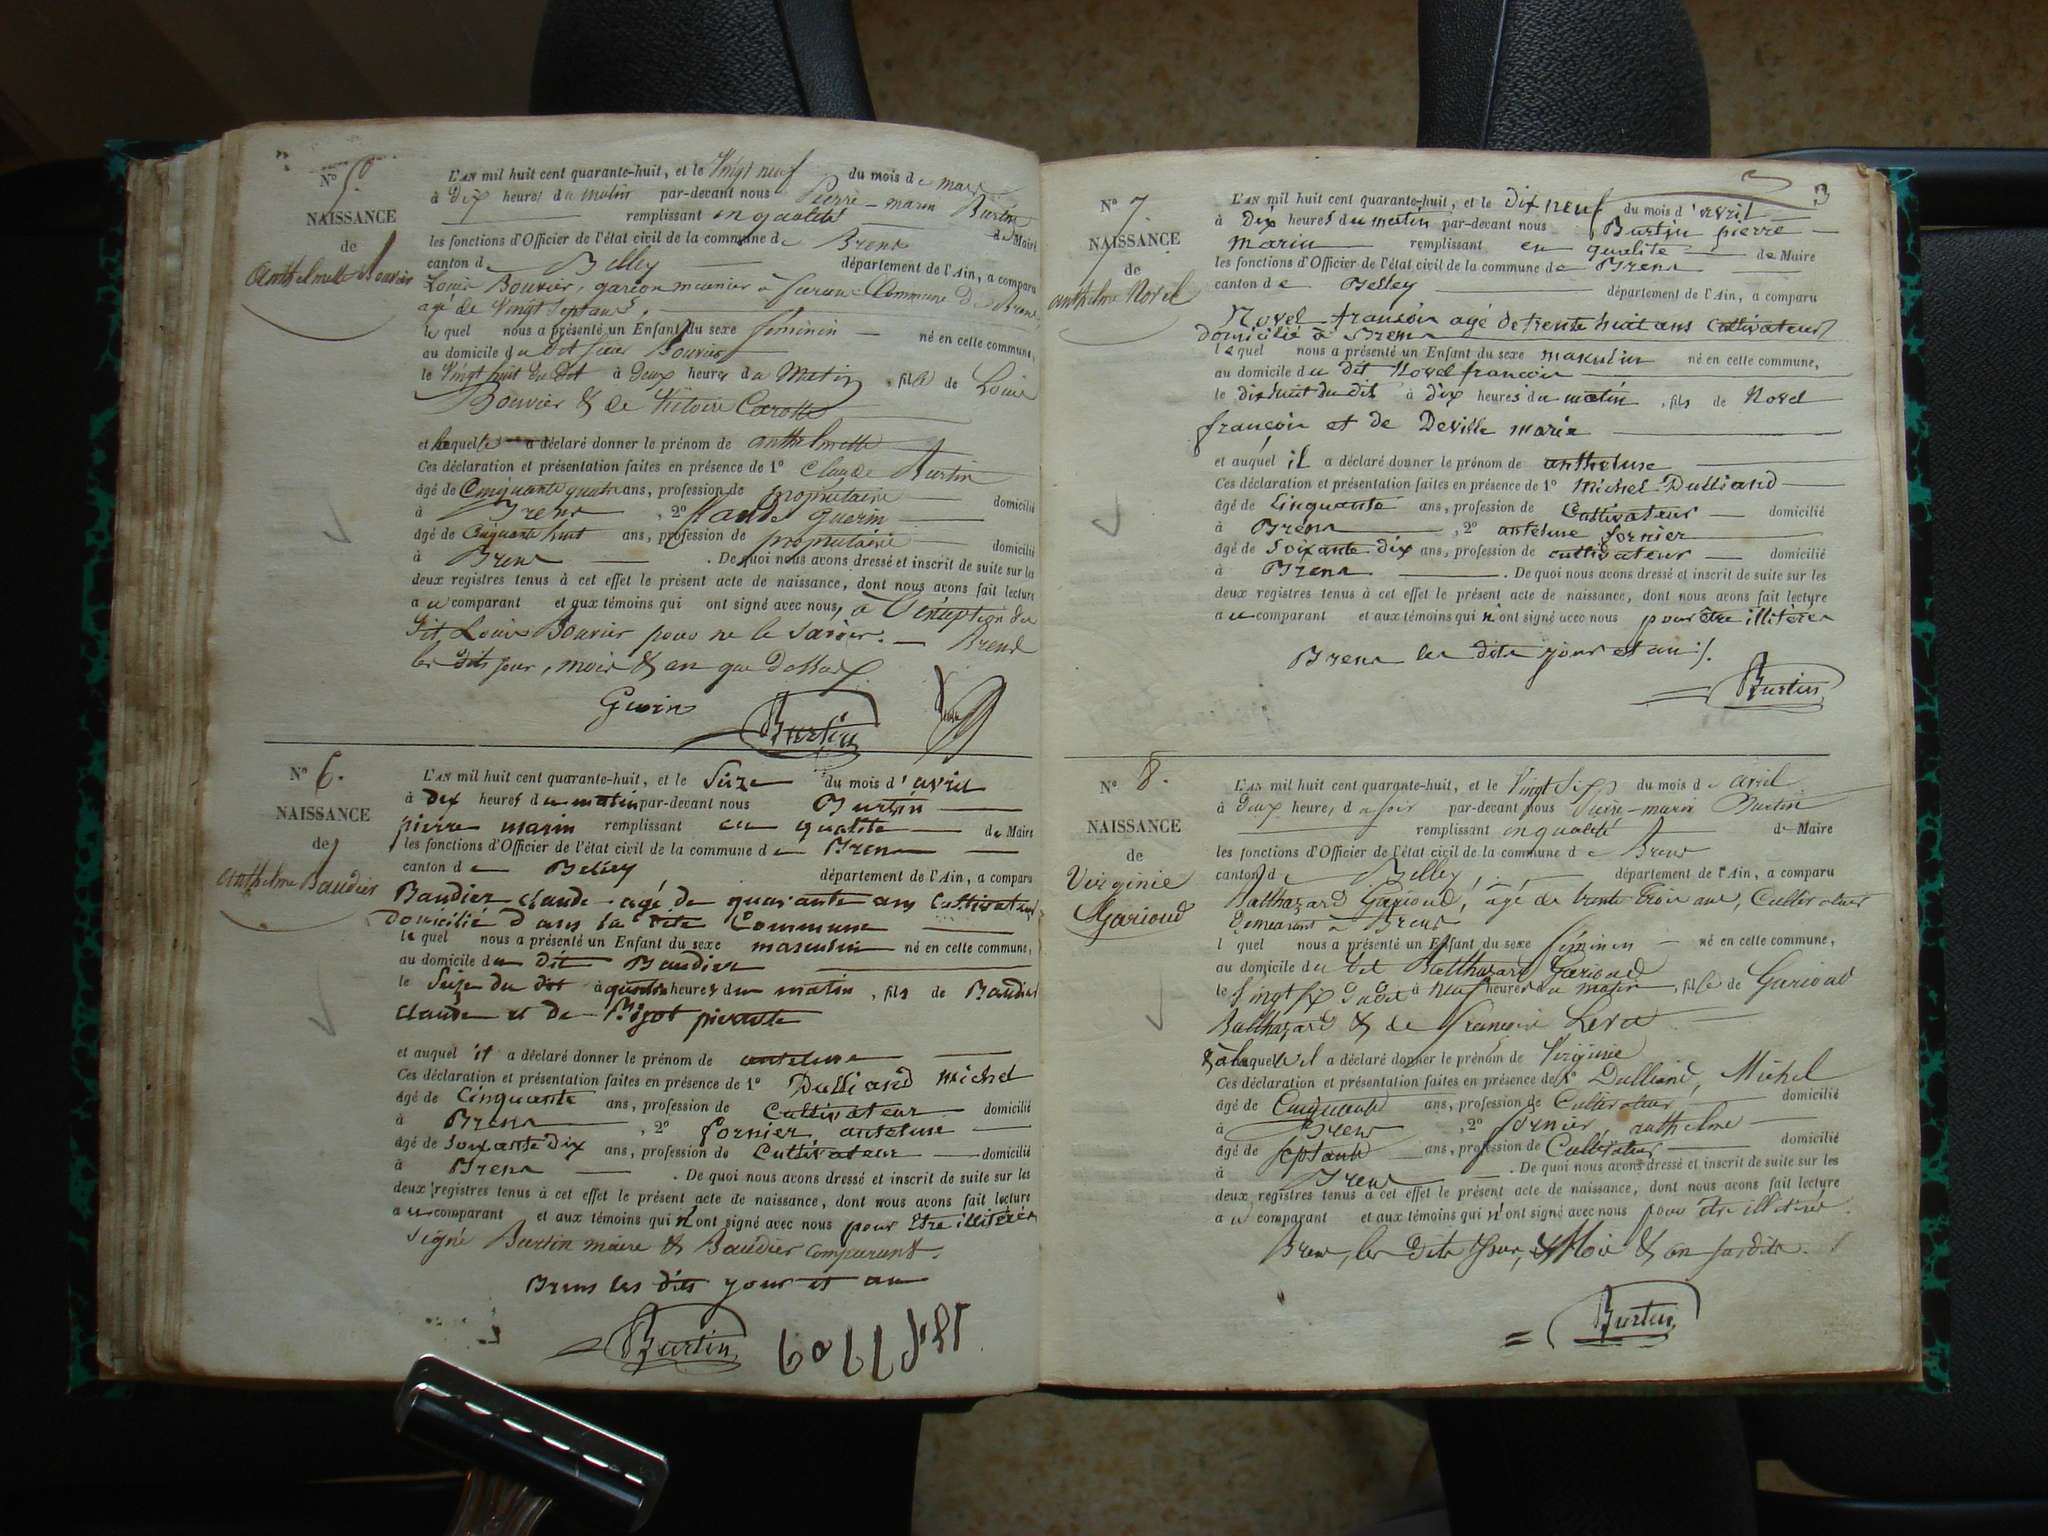 N° 5.
NAISSANCE
de
Anthelmette Bouvier
L'AN mil huit cent quarante-huit, et le Vingt neuf du mois de mars
à Dix heures du matin par-devant nous Pierre-marin Burtin
remplissant en qualité de Maire
les fonctions d'Officier de l'état civil de la commune de Brens
canton de Belley département de l'Ain, a comparu
Louis Bouvier, garçon meunier à furans Commune de Brens,
agé de Vingt Sept ans,
lequel nous a présenté un Enfant du sexe féminin né en cette commune,
au domicile du dit sieur Bouvier
le Vingt huit du dit à Deux heures du Matin, fille de Louis
Bouvier & de Victoire
et laquelle a déclaré donner le prénom de anthelmette
Ces déclaration et présentation faites en présence de 1° Claude Burtin
âgé de Cinquante quatre ans, profession de propriétaire domicilié
à Brens, 2° Claude guerin
âgé de Cinquante huit ans, profession de propriétaire domicilié
à Brens. De quoi nous avons dressé et inscrit de suite sur les
deux registres tenus à cet effet le présent acte de naissance, dont nous avons fait lecture
au comparant et aux témoins qui ont signé avec nous, à L'éxception du
dit Louis Bouvier pour ne le savoir. Brens
les dits jour, mois & an que dessus
Guerin
Burtin
N° 6.
NAISSANCE
de
Anthelme Baudier
L'AN mil huit cent quarante-huit, et le Sèze du mois d'avril
à dix heures du matin par-devant nous Burtin
pierre marin remplissant en qualité de Maire
les fonctions d'Officier de l'état civil de la commune de Brens
canton de Belley département de l'Ain, a comparu
Baudier claude agé de quarante ans Cultivateur
domicilié dans la dite Commune
lequel nous a présenté un Enfant du sexe masculin né en cette commune,
au domicile du dit Baudier
le Seize du dit à quatre heures du matin, fils de Baudier
claude et de
et auquel il a déclaré donner le prénom de antelme
Ces déclaration et présentation faites en présence de 1° Dulliand Michel
âgé de Cinquante ans, profession de Cultivateur domicilié
à Brens, 2° fornier antelme
âgé de Soixante Dix ans, profession de Cultivateur domicilié
à Brens. De quoi nous avons dressé et inscrit de suite sur les
deux registres tenus à cet effet le présent acte de naissance, dont nous avons fait lecture
au comparant et aux témoins qui n'ont signé avec nous pour Etre illitérés
Signé Burtin maire & Baudier comparant.
Brens les dits jour et an
Burtin
3
N° 7.
NAISSANCE
de
anthelme Novel
L'AN mil huit cent quarante-huit, et le Dix neuf du mois d'avril
à Dix heures du matin par-devant nous Burtin pierre
marin remplissant en qualité de Maire
les fonctions d'Officier de l'état civil de la commune de Brens
canton de Belley département de l'Ain, a comparu
Novel françois agé de trente huit ans Cultivateur
domicilié à Brens
lequel nous a présenté un Enfant du sexe masculin né en cette commune,
au domicile du dit Novel françois
le dix huit du dit à dix heures du matin, fils de Novel
françois et de Deville maria
et auquel il a déclaré donner le prénom de anthelme
Ces déclaration et présentation faites en présence de 1° Michel Dulliand
âgé de Cinquante ans, profession de Cultivateur domicilié
à Brens, 2° antelme fornier
âgé de Soixante dix ans, profession de cultivateur domicilié
à Brens. De quoi nous avons dressé et inscrit de suite sur les
deux registres tenus à cet effet le présent acte de naissance, dont nous avons fait lecture
au comparant et aux témoins qui n'ont signé avec nous pour être illitérés
Brens les dits jour et an
Burtin
N° 8.
NAISSANCE
de
Virginie
Garioud
L'AN mil huit cent quarante-huit, et le Vingt Six du mois de avril
à Deux heures du soir par-devant nous Pierre-marin Burtin
remplissant en qualité de Maire
les fonctions d'Officier de l'état civil de la commune de Brens
canton de Belley, département de l'Ain, a comparu
Balthazard Garioud, âgé de trente trois ans, Cultivateur
demeurant à Brens
lquel nous a présenté un Enfant du sexe féminin né en cette commune,
au domicile du dit Balthazard Garioud
le Vingt six dudit à neuf heures du matin, fille de Garioud
Balthazard & de françoise
& à laquelle il a déclaré donner le prénom de Virginie
Ces déclaration et présentation faites en présence de 1° Dulliand, Michel
âgé de Cinquante ans, profession de Cultivateur domicilié
à Brens, 2° fornier, anthelme
âgé de septante ans, profession de Cultivateur domicilié
à Brens. De quoi nous avons dressé et inscrit de suite sur les
deux registres tenus à cet effet le présent acte de naissance, dont nous avons fait lecture
au comparant et aux témoins qui n'ont signé avec nous pour être illitérés.
Brens, les dits Jour, Mois & an susdits.
Burtin